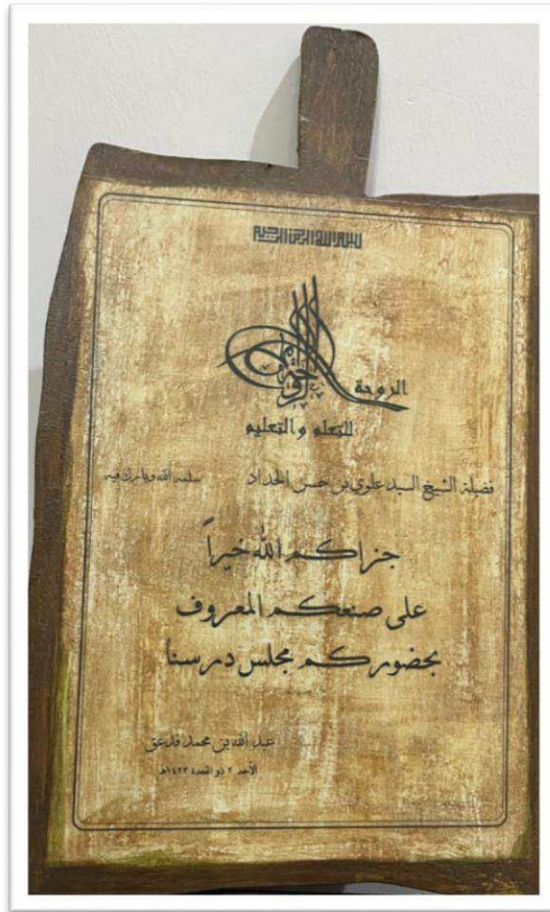 بسم الله الرحمن الرحيم
الروحة
للتعلم والتعليم
فضيلة الشيخ السيد علوي بن حسن الحداد سلمه الله وبارك فيه
جزاكم الله خيراً
على صنعكم المعروف
بحضوركم مجلس درسنا
عبد الله بن محمد فدعق
الأحد ٢ ذو القعدة ١٤٢٣هـ